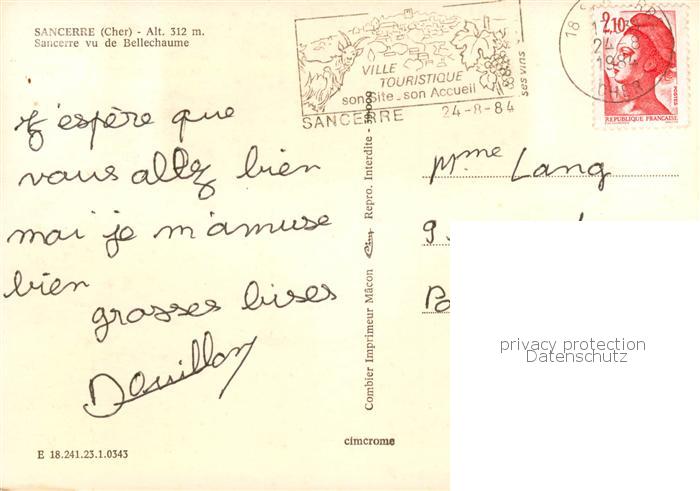 SANCERRE (Cher) - Alt. 312 m.
Sancerre vu de Bellechaume
J'espère que
vous allez bien
moi je m'amuse
bien
grosses bises
E 18.241.23.1.0343
Combier Imprimeur Mâcon Cim Repro. Interdite -
cimcrome
VILLE
TOURISTIQUE
son Site _ son Accueil
ses vins
SANCERRE 24-8-84
24-8
1984
CHER
2,10
POSTES
REPUBLIQUE FRANÇAISE
Mme Lang
9
privacy protection
Datenschutz